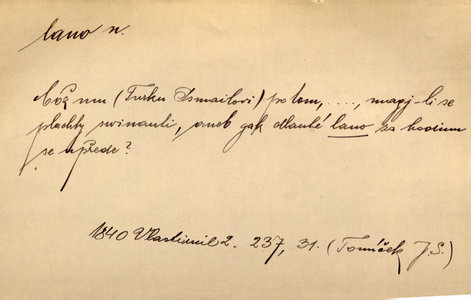 lano n.
Což mu (Turku Ismailovi) po tom, ...., magj-li se
plachty swinauti, aneb gak dlauhé lano za hodinu
se upřede?
1840 Vlastimil 2. 237, 31. (Tomíček J. S.)